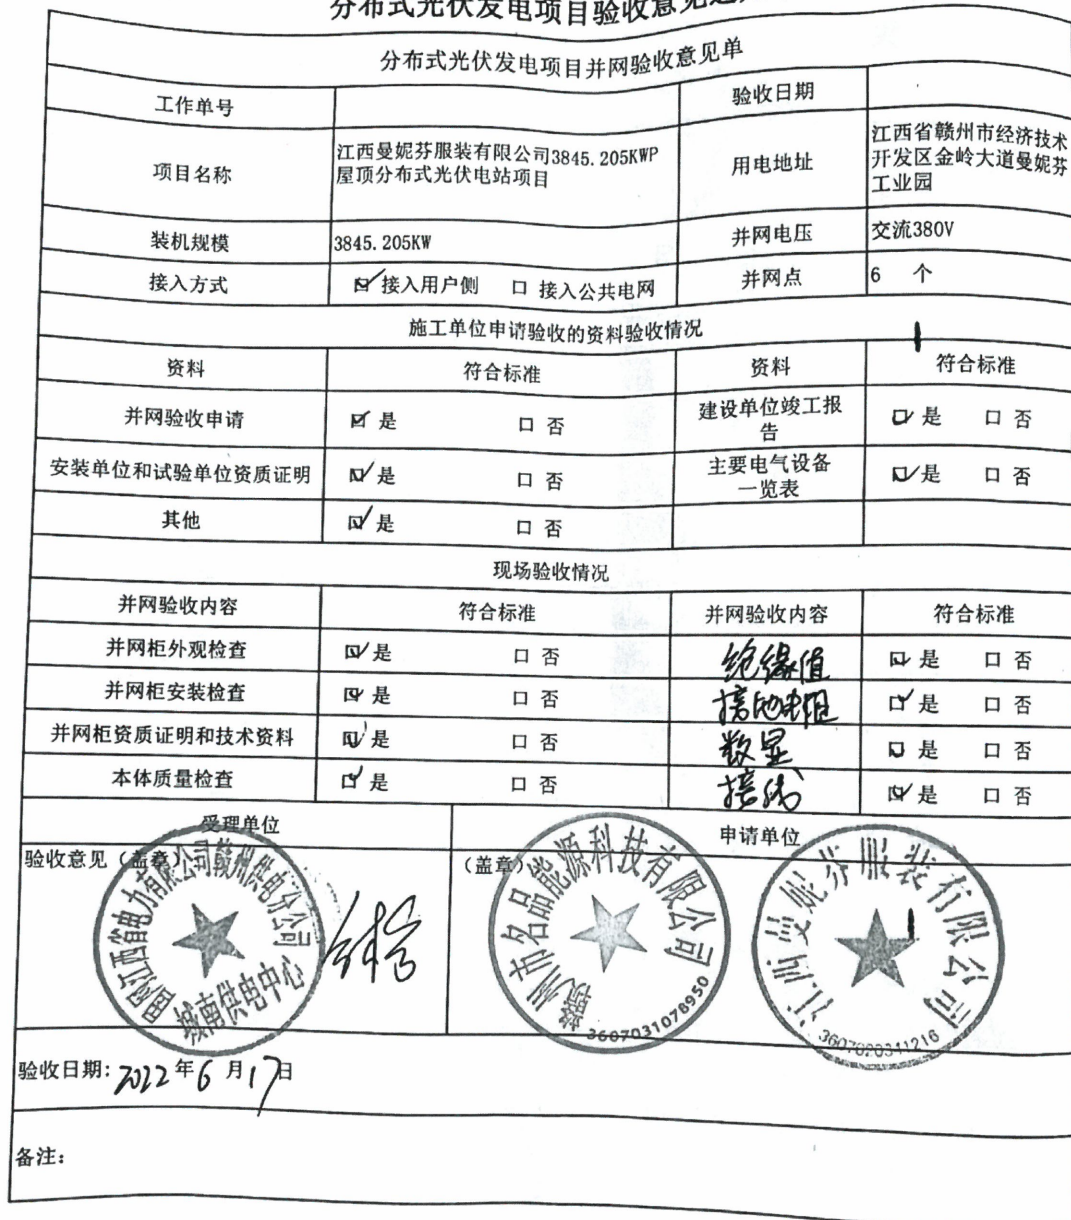 分布式光伏发电项目验收意见
分布式光伏发电项目并网验收意见单
工作单号 验收日期
项目名称 江西曼妮芬服装有限公司3845.205KWP 用电地址 江西省赣州市经济技术
屋顶分布式光伏电站项目 开发区金岭大道曼妮芬
工业园
装机规模 3845.205KW 并网电压 交流380V
接入方式 ☑ 接入用户侧 口 接入公共电网 并网点 6 个
施工单位申请验收的资料验收情况
资料 符合标准 资料 符合标准
并网验收申请 ☑ 是 口 否 建设单位竣工报 ☑ 是 口 否
告
安装单位和试验单位资质证明 ☑ 是 口 否 主要电气设备 ☑ 是 口 否
一览表
其他 ☑ 是 口 否
现场验收情况
并网验收内容 符合标准 并网验收内容 符合标准
并网柜外观检查 ☑ 是 口 否 绝缘值 ☑ 是 口 否
并网柜安装检查 ☑ 是 口 否 接地电阻 ☑ 是 口 否
并网柜资质证明和技术资料 ☑ 是 口 否 数显 ☑ 是 口 否
本体质量检查 ☑ 是 口 否 接线 ☑ 是 口 否
受理单位 申请单位
验收意见（盖章） （盖章）
国网江西省电力有限公司赣州供电分公司
城南供电中心
赣州市名品能源科技有限公司
3607031078950
江西曼妮芬服装有限公司
3607020341216
验收日期：2022 年 6 月 17 日
备注：